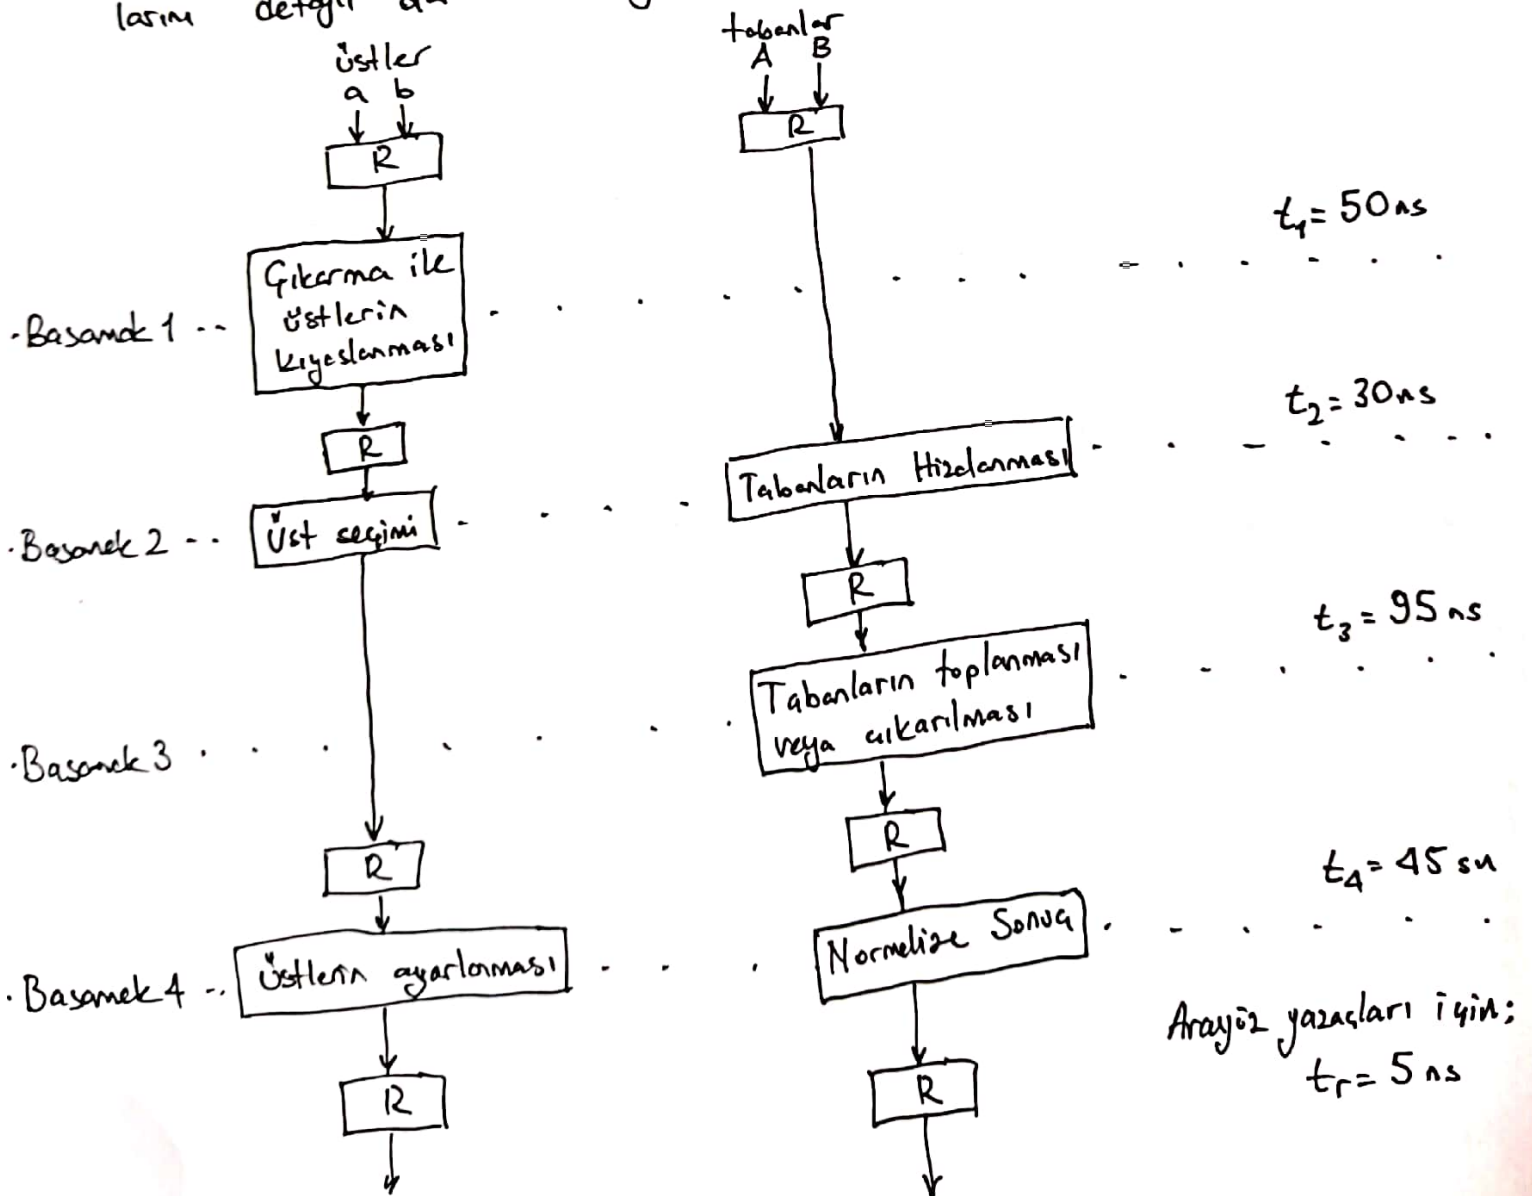 ların detaylı
üstler
a b
R
tabanlar
A B
R
t1= 50ns
Çıkarma ile
üstlerin
kıyaslanması
·Basamak 1 --
R
t2= 30ns
Tabanların Hizalanması
·Basamak 2 --
Üst seçimi
R
t3= 95 ns
Tabanların toplanması
veya çıkarılması
·Basamak 3
R
R
t4= 45 sn
Normalize Sonuç
·Basamak 4 --
Üstlerin ayarlanması
Arayüz yazaçları için:
tr= 5 ns
R
R